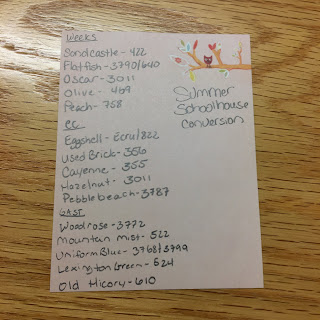 Weeks
Sandcastle - 422
Flatfish - 3790/640
Oscar - 3011
Olive - 469
Peach - 758
CC
Eggshell - Ecru/822
Used Brick - 356
Cayenne - 355
Hazelnut - 3011
Pebble beach - 3787
GAST
Woodrose - 3772
Mountain Mist - 522
Uniform Blue - 3768/3799
Lexington Green - 524
Old Hicory - 610
Summer
Schoolhouse
Conversion